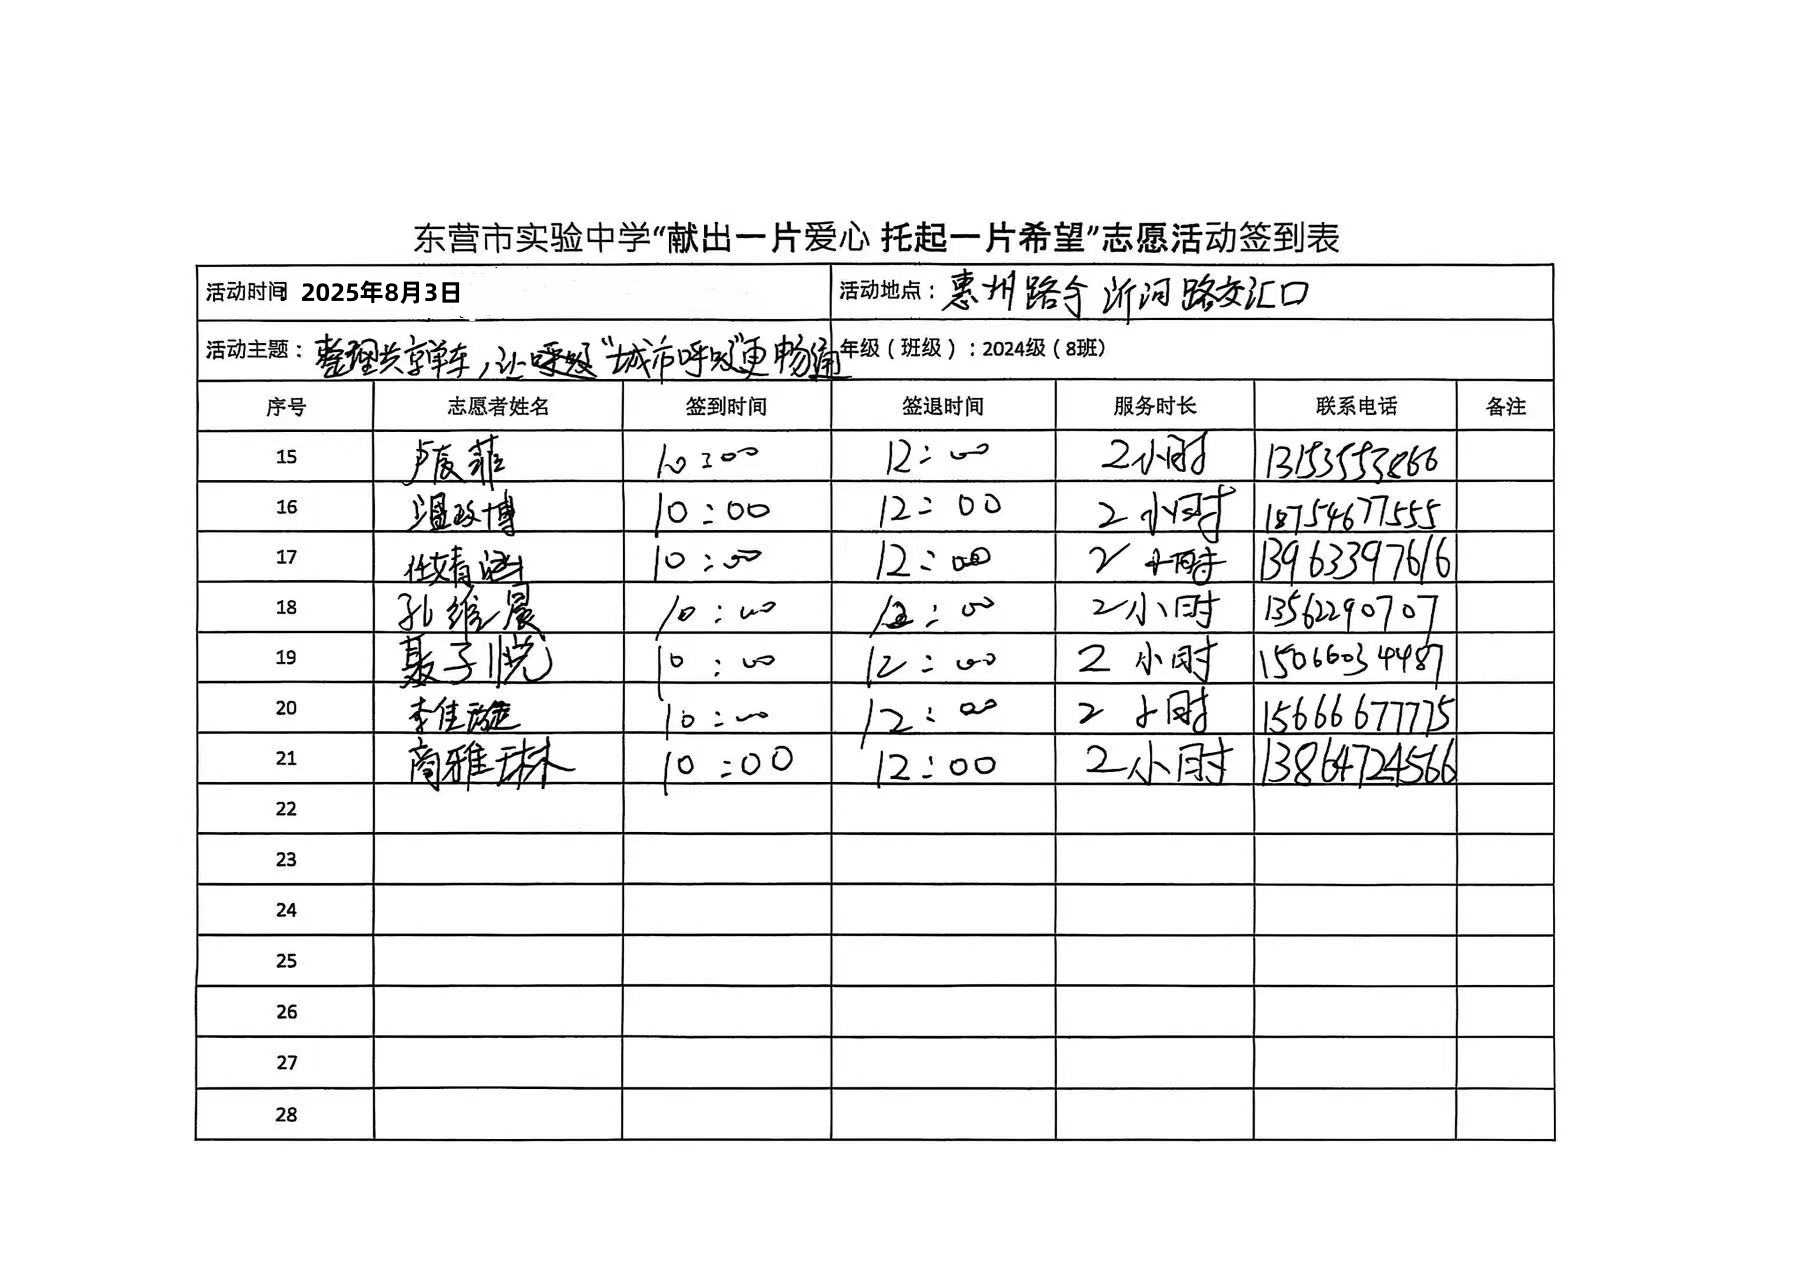 东营市实验中学“献出一片爱心 托起一片希望”志愿活动签到表
活动时间 2025年8月3日 活动地点：惠州路与沂河路交汇口
活动主题：整理共享单车，让“城市呼吸”更畅通 年级（班级）：2024级（8班）
序号 志愿者姓名 签到时间 签退时间 服务时长 联系电话 备注
15 菲 10:00 12:00 2小时 13153553866
16 温政博 10:00 12:00 2小时 18754677555
17 10:00 12:00 2小时 13963397616
18 孔维晨 10:00 12:00 2小时 13562290707
19 聂子悦 10:00 12:00 2小时 15066034487
20 李佳璇 10:00 12:00 2小时 15666677775
21 商雅琳 10:00 12:00 2小时 13864724566
22
23
24
25
26
27
28